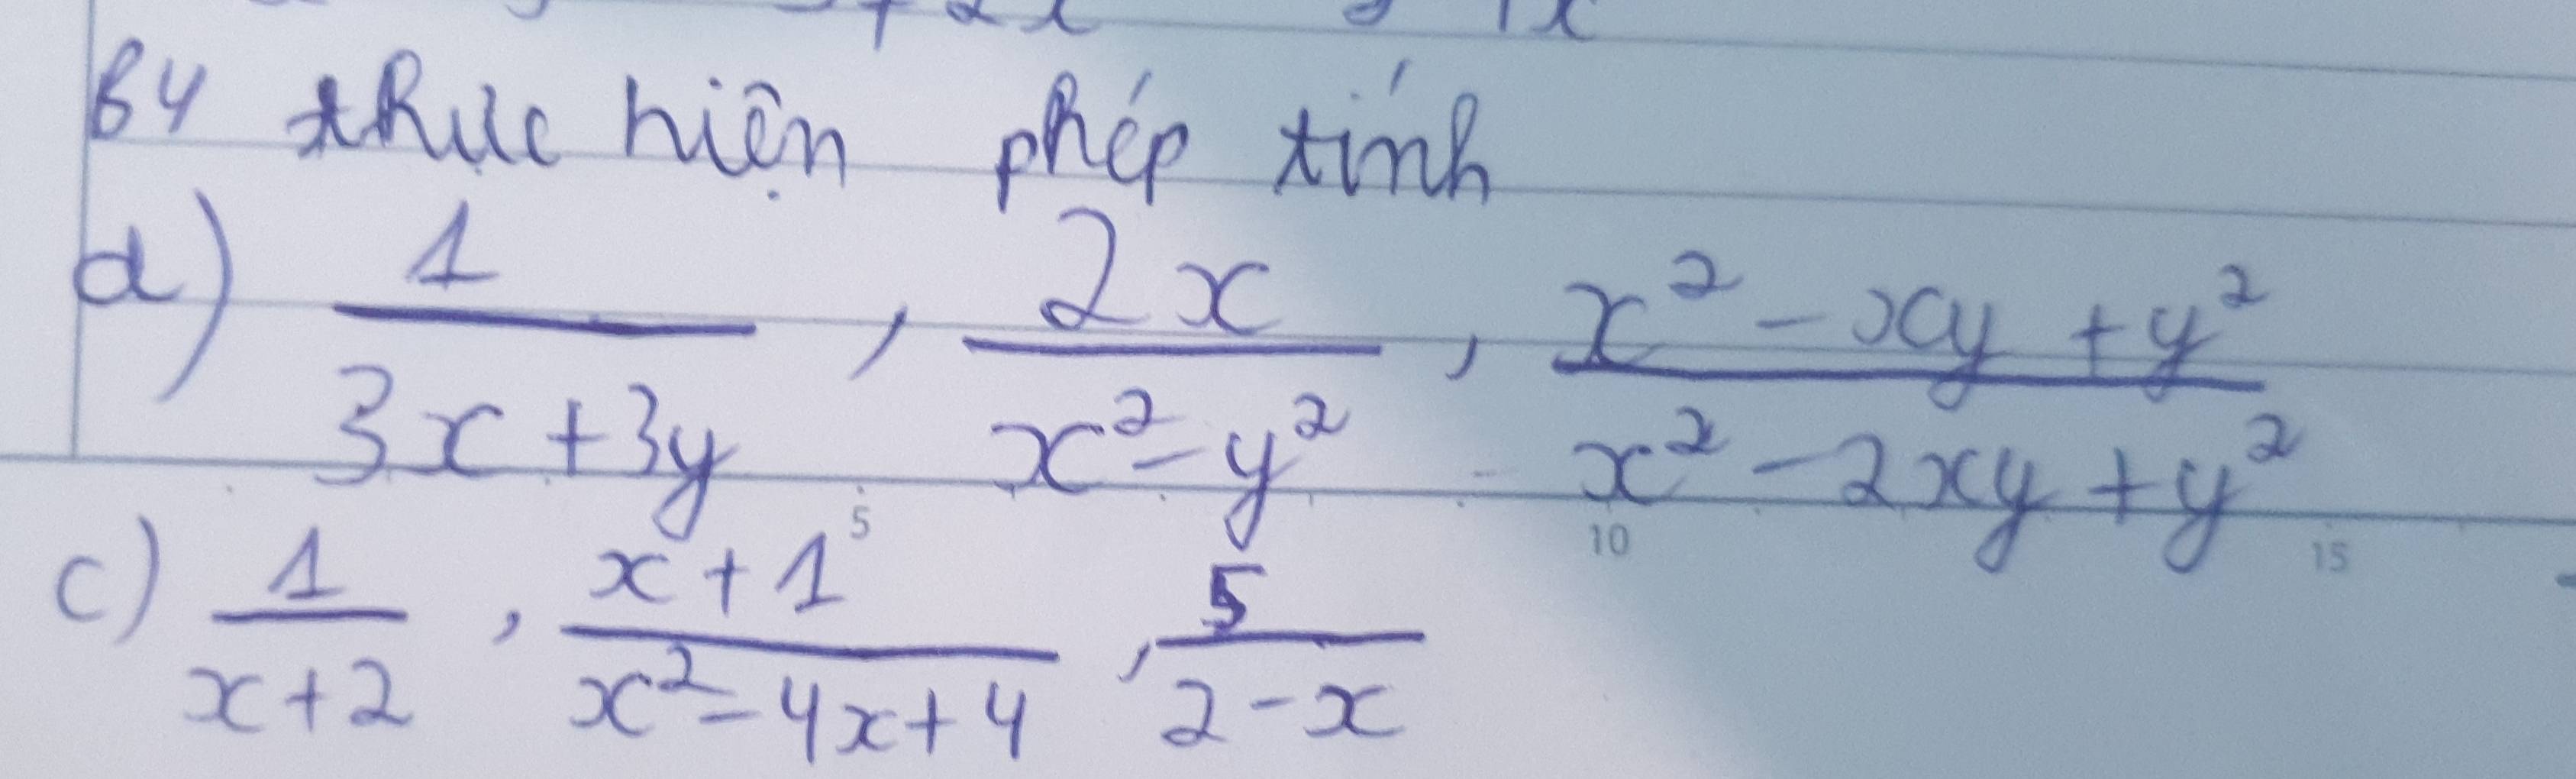 B4 thực hiện phép tính
d) 1/(3x+3y) , 2x/(x²-y²) , (x²-xy+y²)/(x²-2xy+y²)
5 10 15
c) 1/(x+2) , (x+1)/(x²-4x+4) , 5/(2-x)